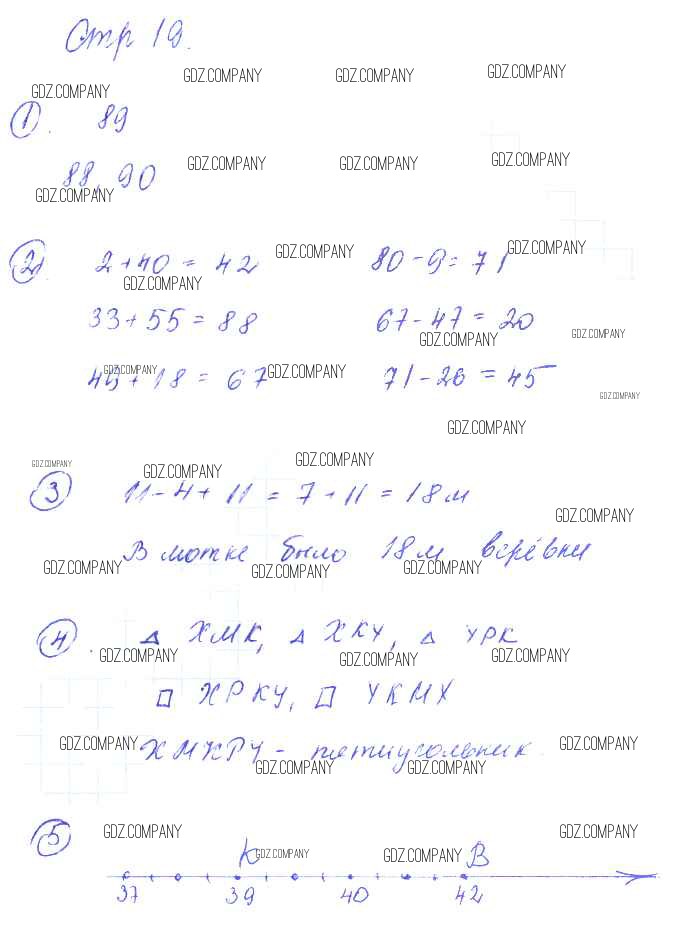 Стр 19.
GDZ.COMPANY GDZ.COMPANY GDZ.COMPANY GDZ.COMPANY
1. 89
GDZ.COMPANY GDZ.COMPANY GDZ.COMPANY
88, 90
GDZ.COMPANY
2. 2+40 = 42 GDZ.COMPANY 80-9=71 GDZ.COMPANY
GDZ.COMPANY
33+55 = 88 67-47 = 20
GDZ.COMPANY GDZ.COMPANY
49+18 = 67 71-26 = 45
GDZ.COMPANY GDZ.COMPANY GDZ.COMPANY
GDZ.COMPANY
GDZ.COMPANY GDZ.COMPANY GDZ.COMPANY
3 11-4+11 = 7+11 = 18м
GDZ.COMPANY
В мотке было 18м верёвки
GDZ.COMPANY GDZ.COMPANY GDZ.COMPANY
4. △ ХМК, △ ХКУ, △ УРК
GDZ.COMPANY GDZ.COMPANY GDZ.COMPANY
□ ХРКУ, □ УКМХ
GDZ.COMPANY ХМКРУ - пятиугольник. GDZ.COMPANY
GDZ.COMPANY GDZ.COMPANY
5 GDZ.COMPANY GDZ.COMPANY
К GDZ.COMPANY GDZ.COMPANY В
37 39 40 42